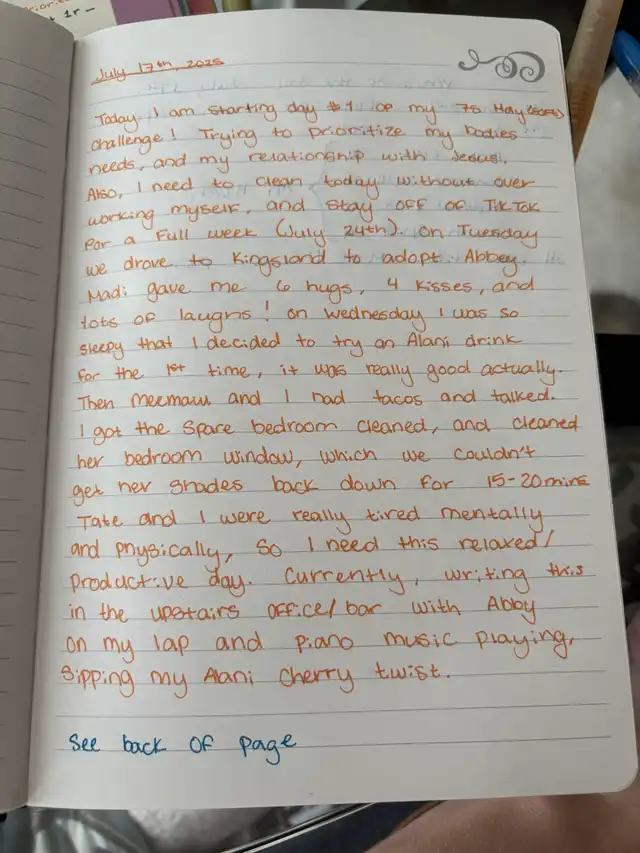 1r —
July 17th, 2025
Today I am starting day #1 of my 75 May
challenge! Trying to prioritize my bodies
needs, and my relationship with Jesus.
Also, I need to clean today without over
working myself, and stay off of TikTok
for a full week (July 24th). On Tuesday
we drove to Kingsland to adopt Abbey.
Madi gave me 6 hugs, 4 kisses, and
lots of laughs! On Wednesday I was so
sleepy that I decided to try an Alani drink
for the 1st time, it was really good actually.
Then meemaw and I had tacos and talked.
I got the spare bedroom cleaned, and cleaned
her bedroom window, which we couldn't
get her shades back down for 15-20mins
Tate and I were really tired mentally
and physically, so I need this relaxed/
productive day. Currently, writing this
in the upstairs office/bar with Abby
on my lap and piano music playing,
sipping my Alani Cherry twist.
See back of page